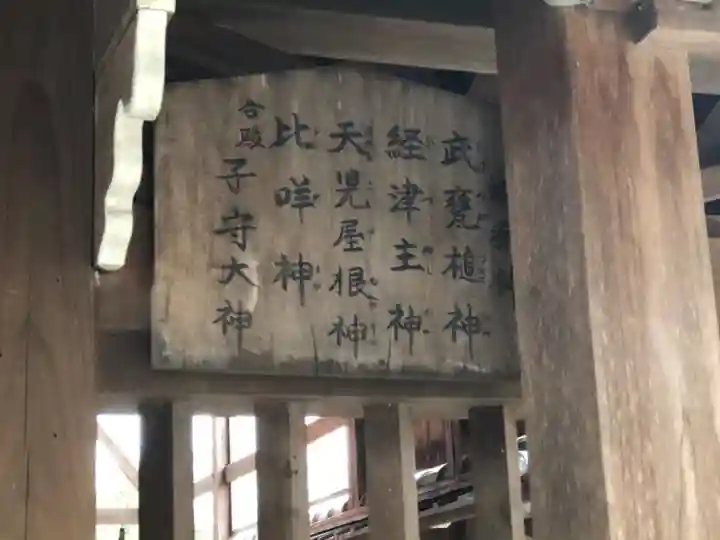 武甕槌神
経津主神
天児屋根神
比咩神
合殿
子守大神